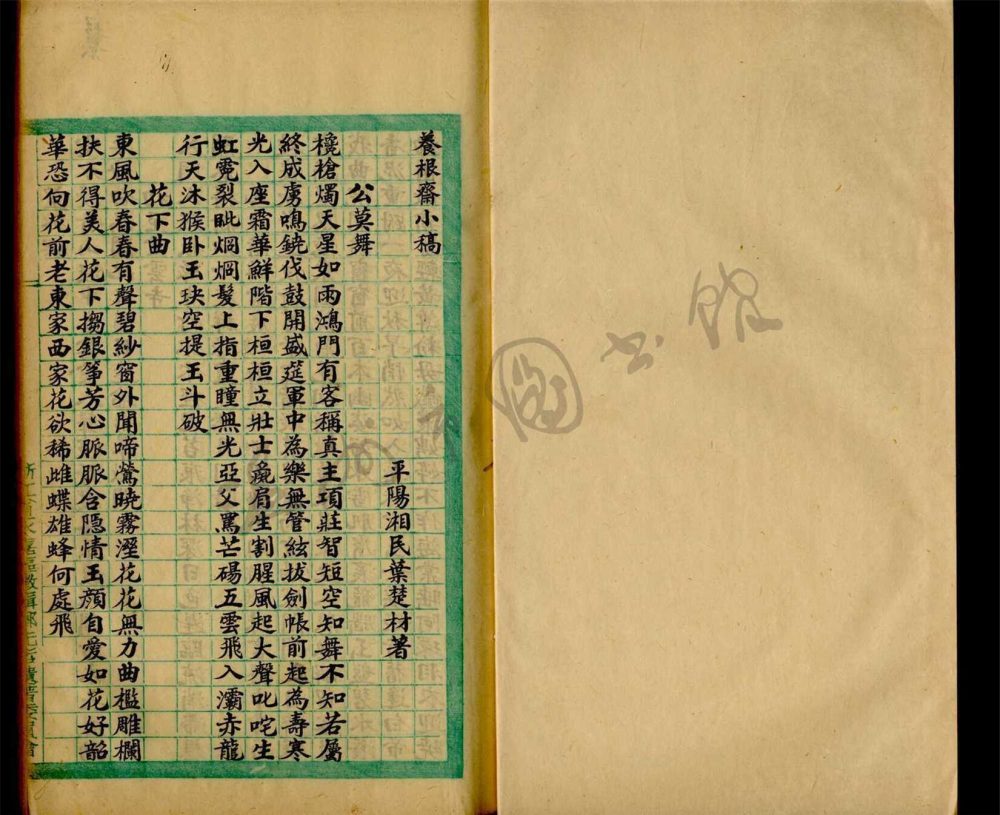 養根齋小稿
平陽湘民葉楚材著
公莫舞
欃槍燭天星如雨鴻門有客稱真主項莊智短空知舞不知若屬
終成虜鳴鐃伐鼓開盛筵軍中為樂無管絃拔劍帳前起為壽寒
光入座霜華鮮階下桓桓立壯士彘肩生割腥風起大聲叱咤生
虹霓裂眦烱烱髮上指重瞳無光亞父罵芒碭五雲飛入灞赤龍
行天沐猴卧玉玦空提玉斗破
花下曲
東風吹春春有聲碧紗窗外聞啼鶯曉霧溼花花無力曲檻雕欄
扶不得美人花下搊銀箏芳心脈脈含隱情玉顏自愛如花好韶
華恐向花前老東家西家花欲稀雌蝶雄蜂何處飛
圖書館